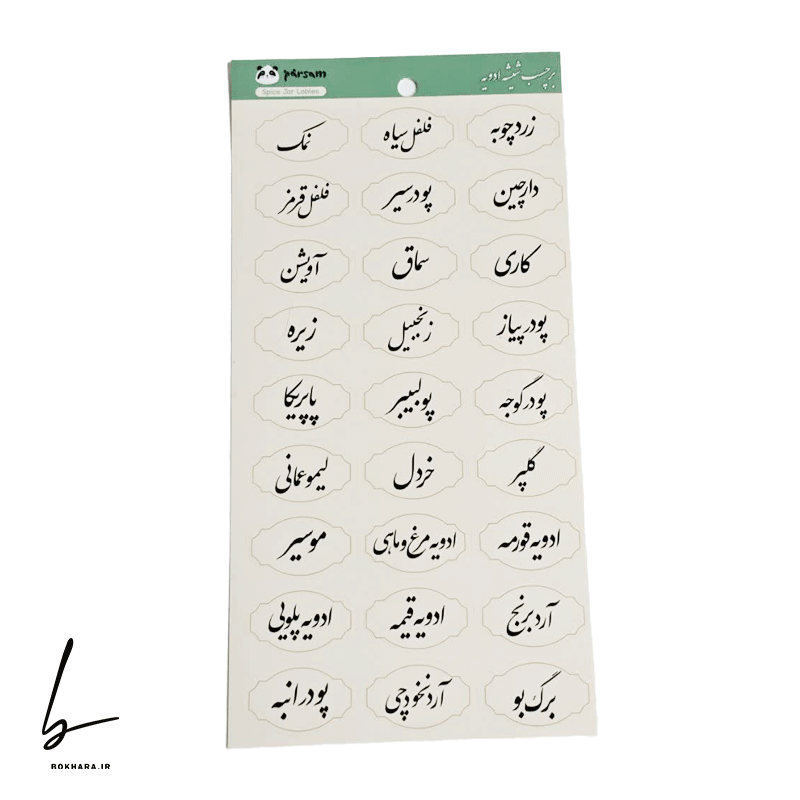 برچسب شیشه ادویه
parsam
Spice Jar Lables
زردچوبه فلفل سیاه نمک
دارچین پودر سیر فلفل قرمز
کاری سماق آویشن
پودر پیاز زنجبیل زیره
پودر گوجه پولبیبر پاپریکا
گلپر خردل لیمو عمانی
ادویه قورمه ادویه مرغ و ماهی موسیر
آرد برنج ادویه قیمه ادویه پلویی
برگ بو آرد نخودچی پودر انبه
BOKHARA.IR